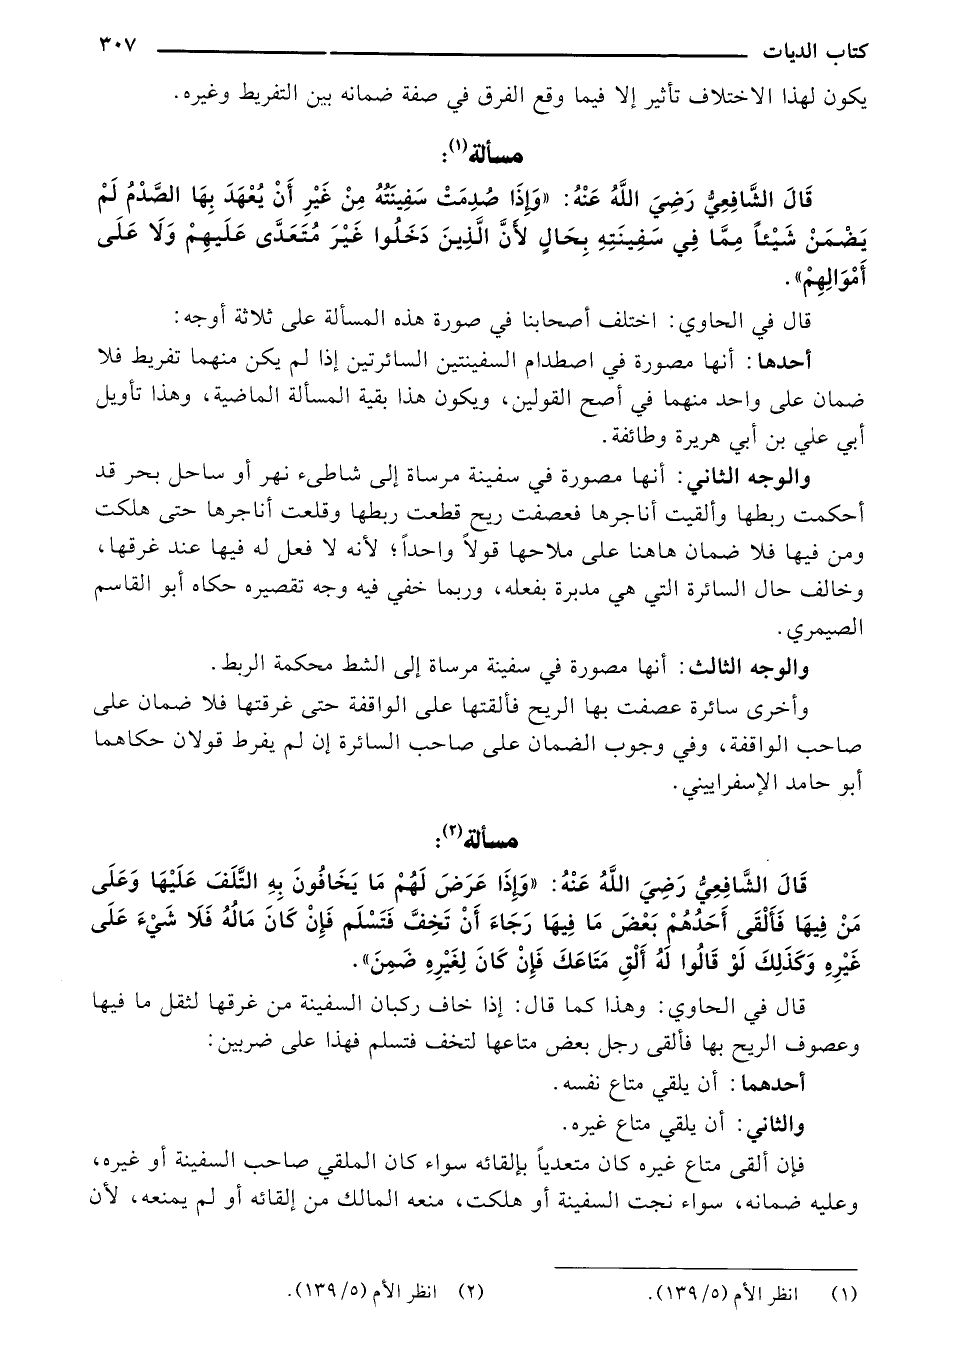 كتاب الديات ٣٠٧
يكون لهذا الاختلاف تأثير إلا فيما وقع الفرق في صفة ضمانه بين التفريط وغيره.
مسألة(١):
قَالَ الشَّافِعِيُّ رَضِيَ اللَّهُ عَنْهُ: «وَإِذَا صُدِمَتْ سَفِينَتُهُ مِنْ غَيْرِ أَنْ يُعْهَدَ بِهَا الصَّدْمُ لَمْ
يَضْمَنْ شَيْئاً مِمَّا فِي سَفِينَتِهِ بِحَالٍ لأَنَّ الَّذِينَ دَخَلُوا غَيْرَ مُتَعَدَّى عَلَيهِمْ وَلَا عَلَى
أَمْوَالِهِمْ».
قال في الحاوي: اختلف أصحابنا في صورة هذه المسألة على ثلاثة أوجه:
أحدها: أنها مصورة في اصطدام السفينتين السائرتين إذا لم يكن منهما تفريط فلا
ضمان على واحد منهما في أصح القولين، ويكون هذا بقية المسألة الماضية، وهذا تأويل
أبي علي بن أبي هريرة وطائفة.
والوجه الثاني: أنها مصورة في سفينة مرساة إلى شاطىء نهر أو ساحل بحر قد
أحكمت ربطها وألقيت أناجرها فعصفت ريح قطعت ربطها وقلعت أناجرها حتى هلكت
ومن فيها فلا ضمان هاهنا على ملاحها قولاً واحداً؛ لأنه لا فعل له فيها عند غرقها،
وخالف حال السائرة التي هي مدبرة بفعله، وربما خفي فيه وجه تقصيره حكاه أبو القاسم
الصيمري.
والوجه الثالث: أنها مصورة في سفينة مرساة إلى الشط محكمة الربط.
وأخرى سائرة عصفت بها الريح فألقتها على الواقفة حتى غرقتها فلا ضمان على
صاحب الواقفة، وفي وجوب الضمان على صاحب السائرة إن لم يفرط قولان حكاهما
أبو حامد الإسفراييني.
مسألة(٢):
قَالَ الشَّافِعِيُّ رَضِيَ اللَّهُ عَنْهُ: «وَإِذَا عَرَضَ لَهُمْ مَا يَخَافُونَ بِهِ التَّلَفَ عَلَيْهَا وَعَلَى
مَنْ فِيهَا فَأَلْقَى أَحَدُهُمْ بَعْضَ مَا فِيهَا رَجَاءَ أَنْ تَخِفَّ فَتَسْلَم فَإِنْ كَانَ مَالُهُ فَلَا شَيْءَ عَلَى
غَيْرِهِ وَكَذَلِكَ لَوْ قَالُوا لَهُ أَلْقِ مَتَاعَكَ فَإِنْ كَانَ لِغَيْرِهِ ضَمِنَ».
قال في الحاوي: وهذا كما قال: إذا خاف ركبان السفينة من غرقها لثقل ما فيها
وعصوف الريح بها فألقى رجل بعض متاعها لتخف فتسلم فهذا على ضربين:
أحدهما: أن يلقي متاع نفسه.
والثاني: أن يلقي متاع غيره.
فإن ألقى متاع غيره كان متعدياً بإلقائه سواء كان الملقي صاحب السفينة أو غيره،
وعليه ضمانه، سواء نجت السفينة أو هلكت، منعه المالك من إلقائه أو لم يمنعه، لأن
(١) انظر الأم (١٣٩/٥). (٢) انظر الأم (١٣٩/٥).